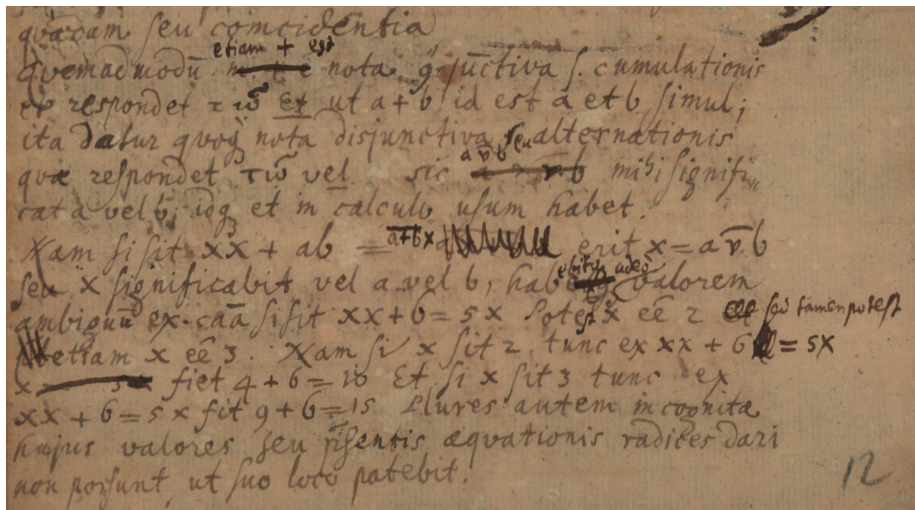 quadam seu comcidentia
etiam + est
Quemadmodū nota gjūctiva s. cumulationis
respondet τῶ Et ut a+b id est a et b simul;
ita datur quoq nota disjunctiva seu alternationis
a v̄ b
quæ respondet τῶ vel sic v̄ b mihi signifi
cat a vel b, idq et in calculo usum habet.
Nam si sit xx + ab = a+b x erit x = a v̄ b
seu x significabit vel a vel b, habebitq adeo valorem
ambiguū ex. caā si sit xx+6 = 5x potest x eē 2 seu tamen potest
etiam x eē 3. Nam si x sit 2 tunc ex xx + 6 = 5x
fiet 4+6=10 Et si x sit 3 tunc ex
xx+6=5x fit 9+6=15 Plures autem incognitæ
hujus valores seu æquationis radices dari
non possunt ut suo loco patebit.
12